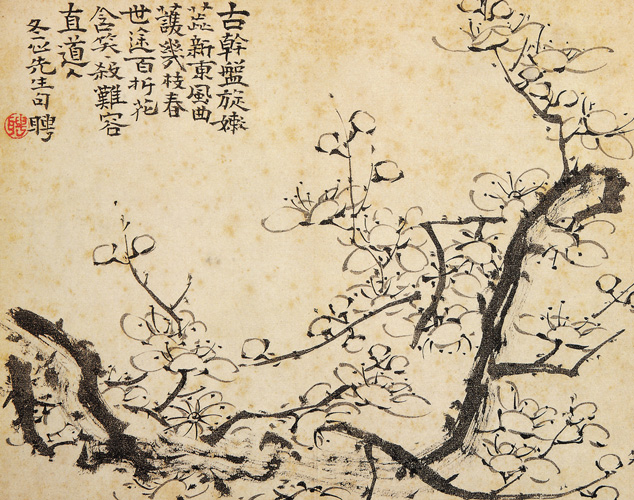 古幹盤旋嫩
蕊新東風曲
護幾枝春
世途百折花
含笑難容
直道人
冬心先生句 聘